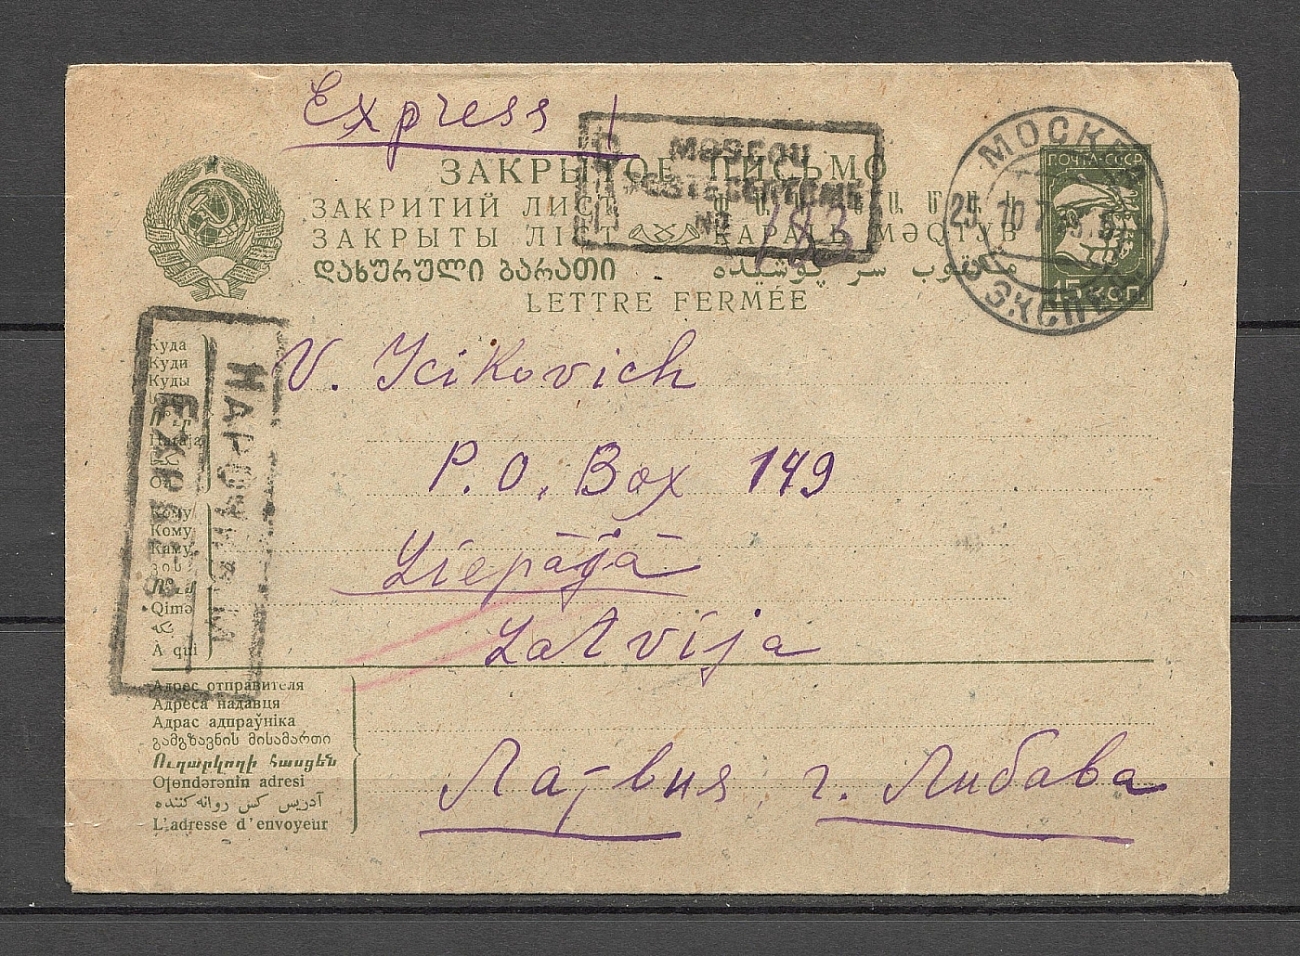 Express
MOSCOU
No 183
ЗАКРЫТОЕ ПИСЬМО
ЗАКРИТИЙ ЛИСТ
ЗАКРЫТЫ ЛІСТ
ᲓᲐᲮᲣᲠᲣᲚᲘ ᲑᲐᲠᲐᲗᲘ
LETTRE FERMÉE
МОСКВА
ЭКСПЕД.
ПОЧТА·СССР
15 КОП.
НАРОЧНЫМ
EXPRÈS
Куда
Куди
Куды
V. Icikovich
P.O. Box 149
Кому
Кому
Каму
Qimə
À qui
Liepājā
Latvija
Адрес отправителя
Адреса надавця
Адрас адпраўніка
გამგზავნის მისამართი
Ուղարկողի հասցեն
Ojөndərənin adresi
آدریس کس روانه کننده
L'adresse d'envoyeur
Латвия, г. Либава